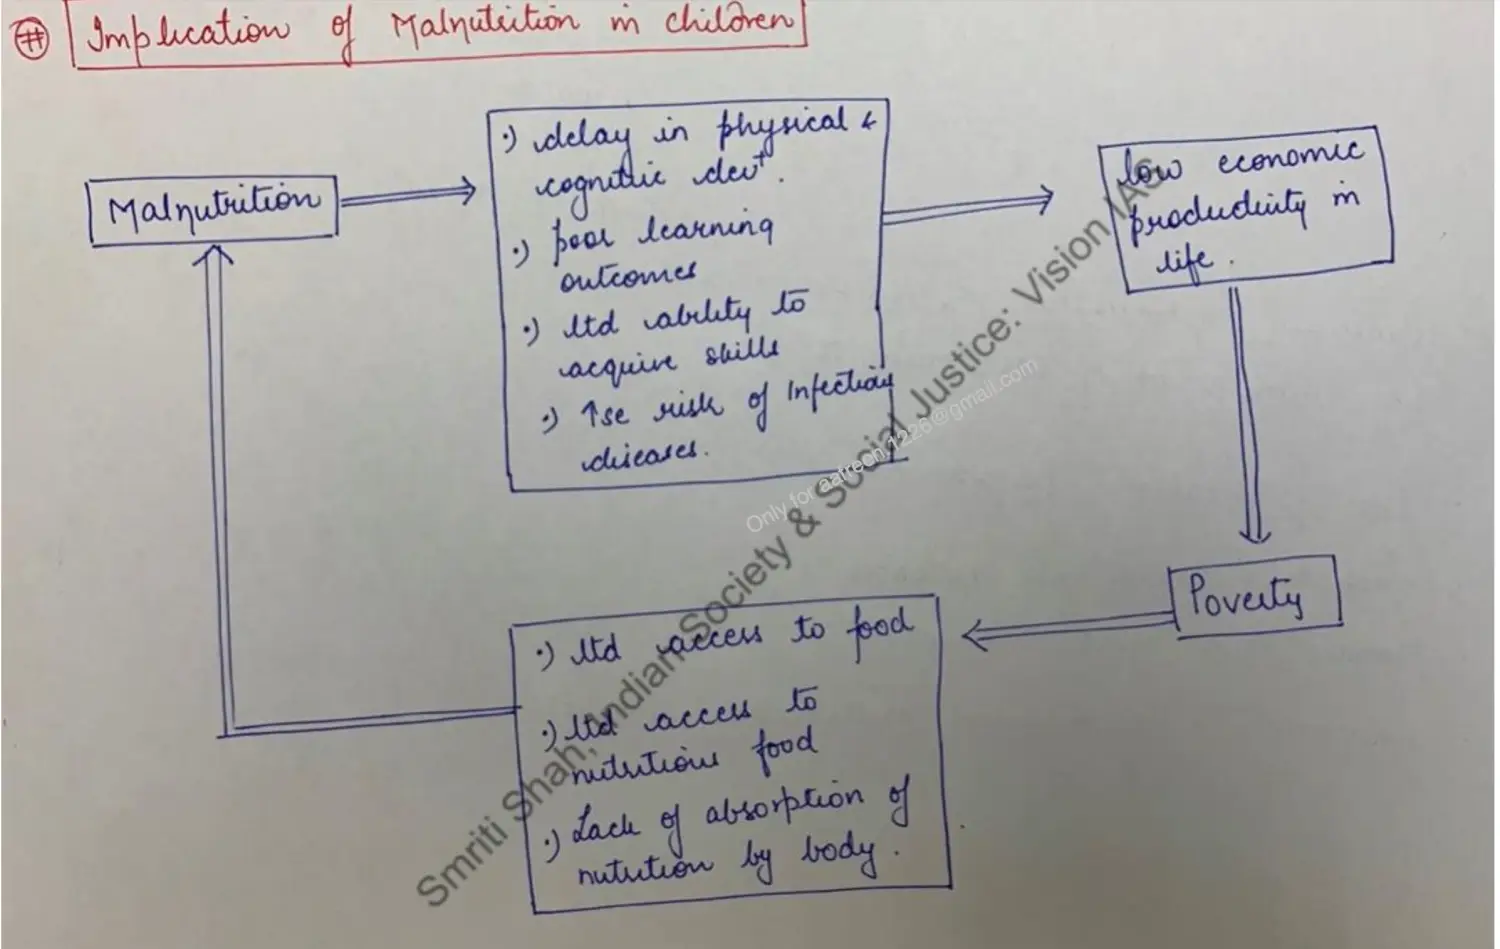 # Implication of Malnutrition in children
Malnutrition
·) delay in physical &
cognitive devt.
·) poor learning
outcomes
·) ltd ability to
acquire skills
·) ↑se risk of Infectious
diseases.
low economic
productivity in
life.
Poverty
·) ltd access to food
·) ltd access to
nutritious food
·) Lack of absorption of
nutrition by body.
Smriti Shah, Indian Society & Social Justice: Vision IAS
Only for aafreen.1226@gmail.com